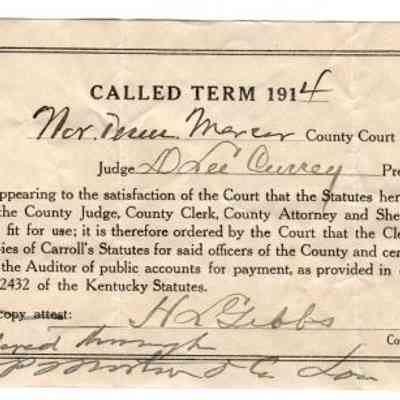 CALLED TERM 1914
Nov. Term. Mercer County Court
Judge D Lee Currey Pre
appearing to the satisfaction of the Court that the Statutes her
the County Judge, County Clerk, County Attorney and She
fit for use; it is therefore ordered by the Court that the Cle
ies of Carroll's Statutes for said officers of the County and cer
the Auditor of public accounts for payment, as provided in
2432 of the Kentucky Statutes.
copy attest: H L Gibbs
through Co
& Co